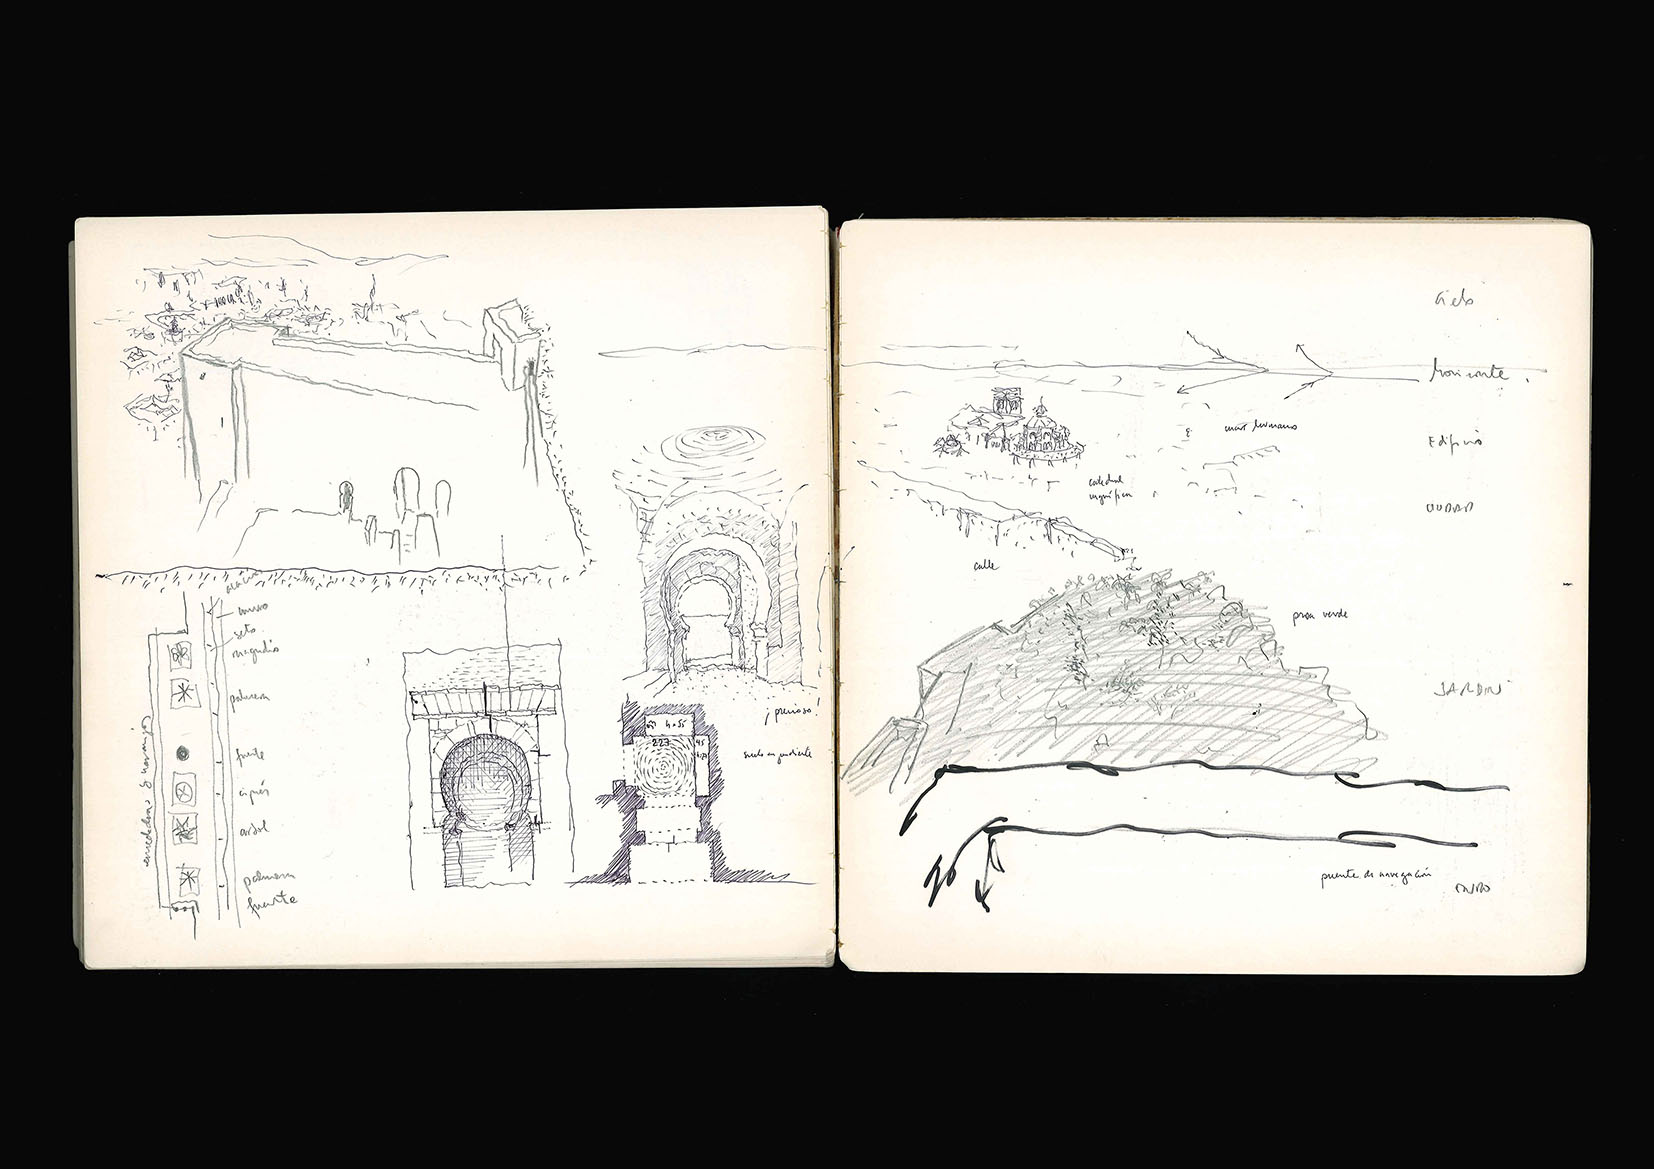 muro
seto
magnolio
palmera
fuente
ciprés
arbol
palmera
fuente
enredaderas y naranjos
¡precioso!
h=55
227
45
suelo en pendiente
Cielo
horizonte.
Edificio
catedral
magnífica
CIUDAD
calle
proa verde
JARDIN
puente de navegación
MURO